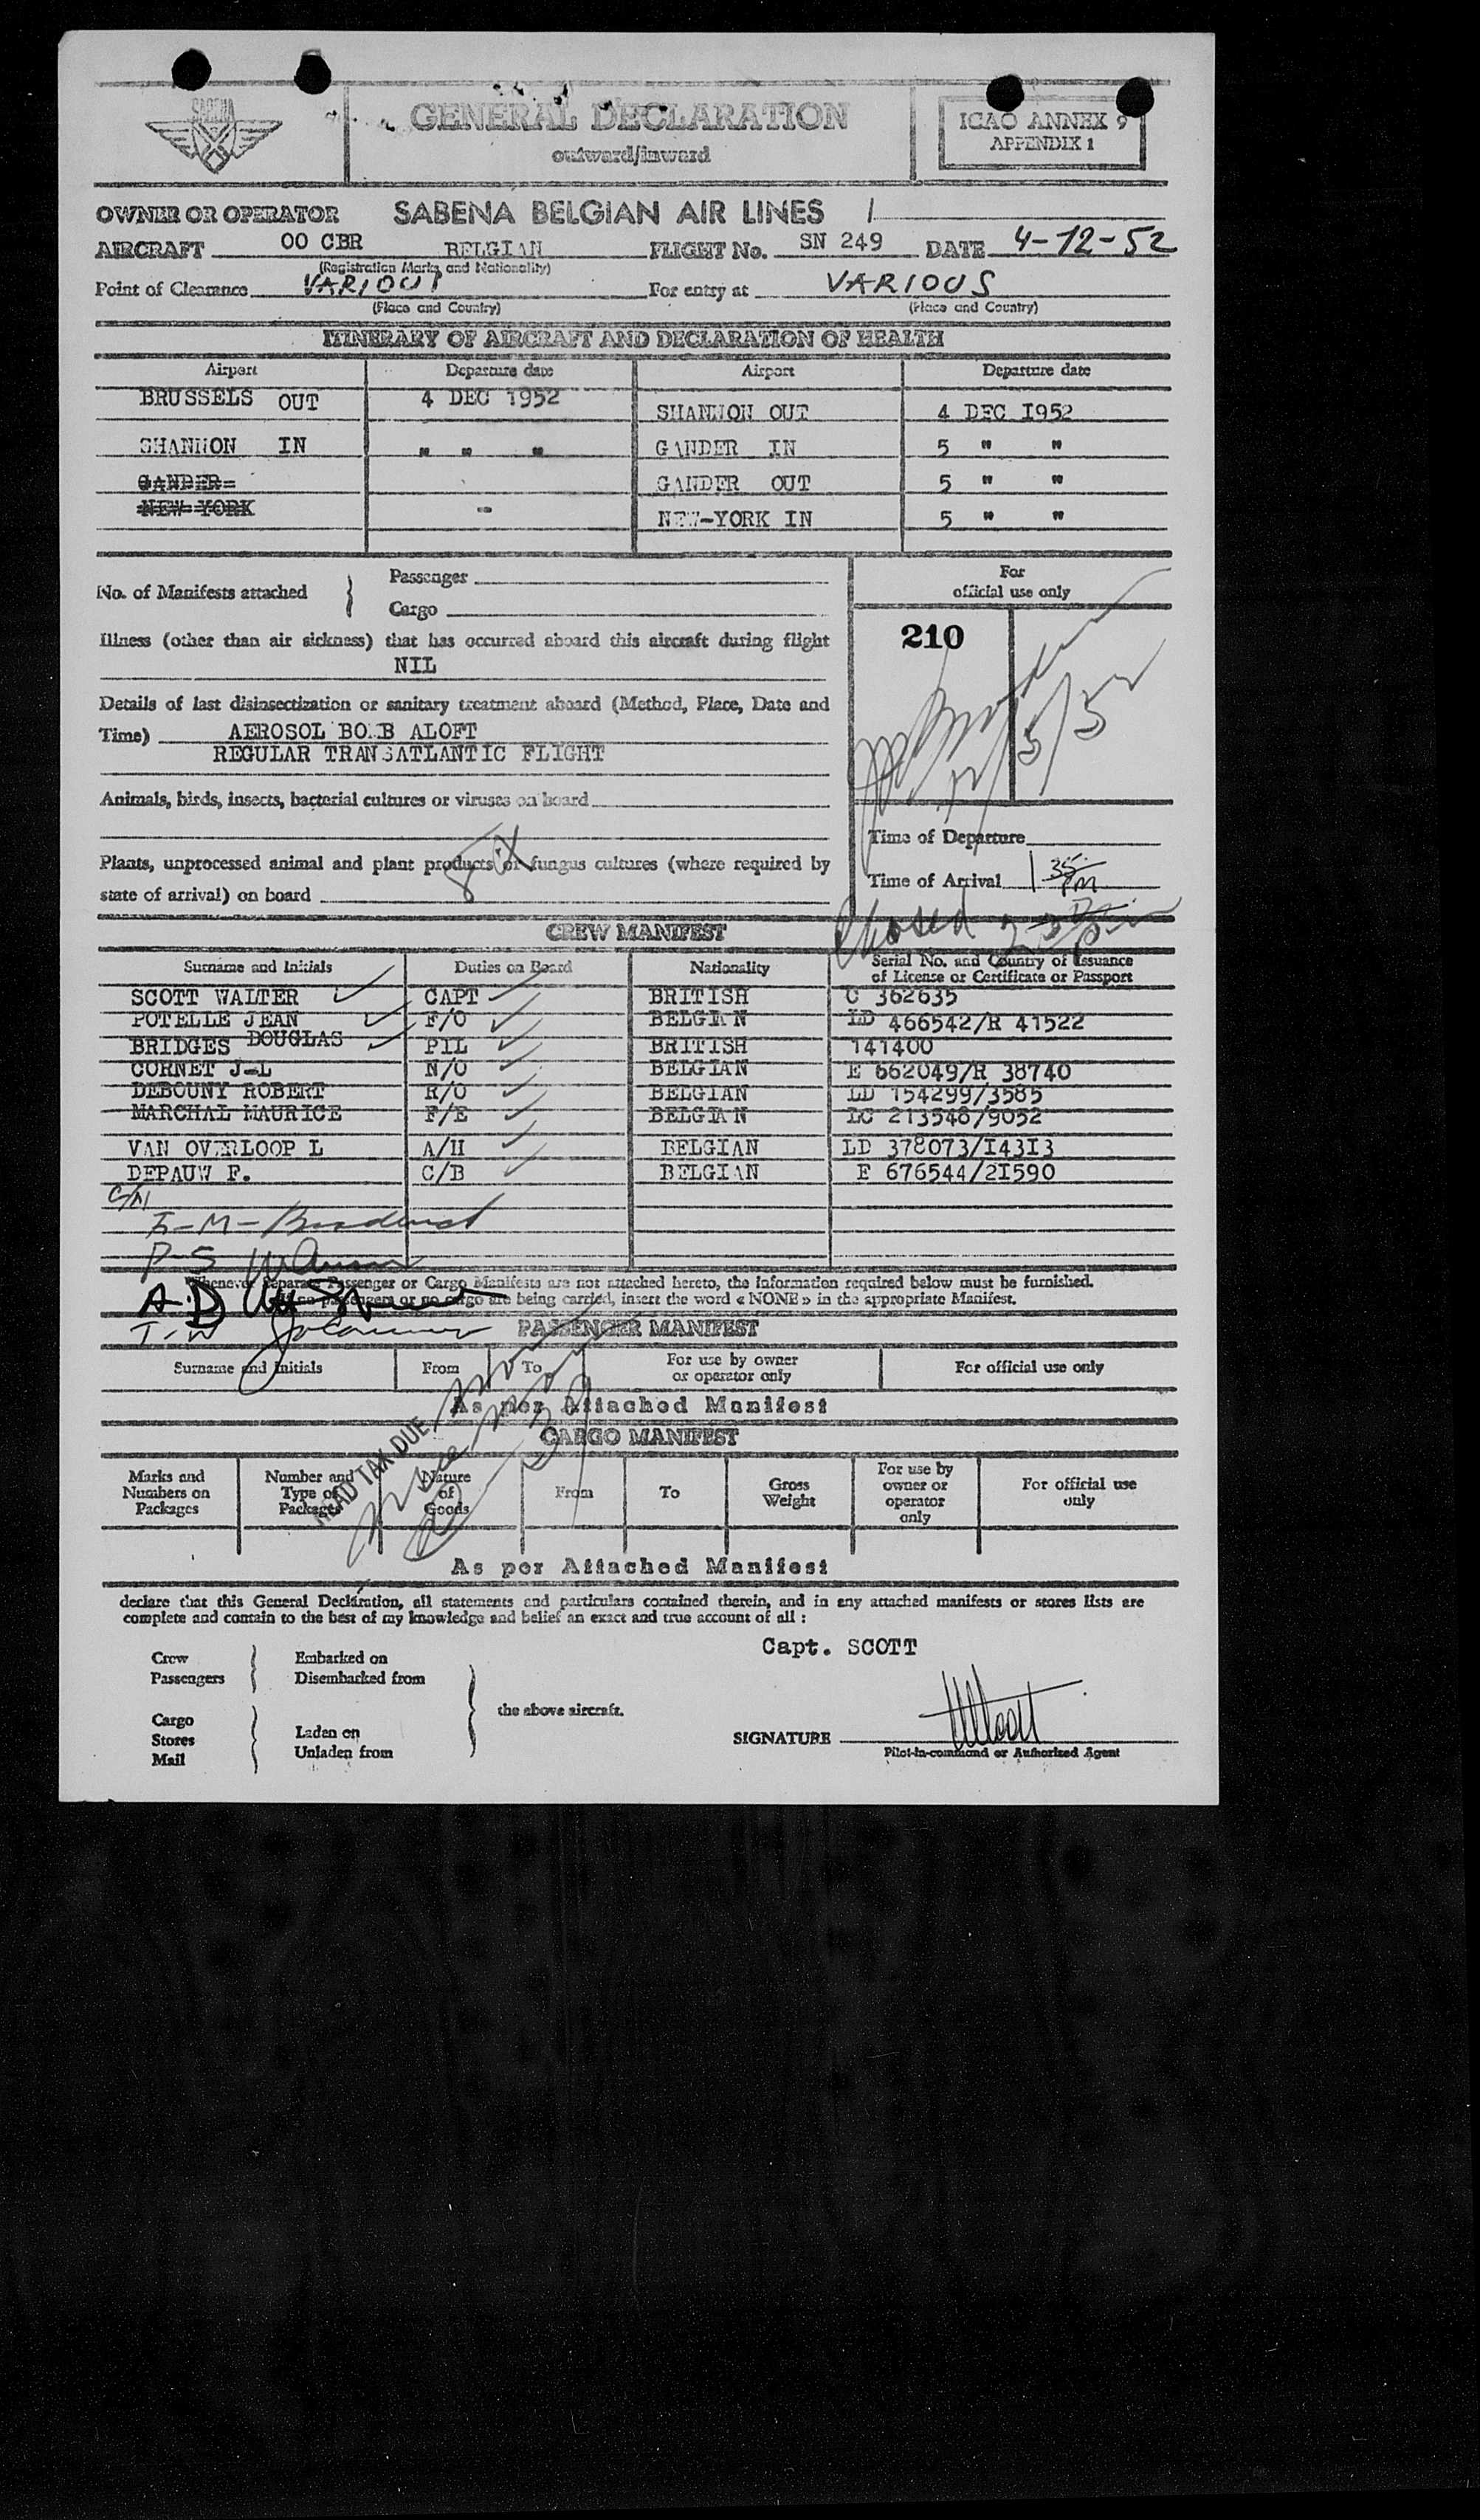 SABENA
GENERAL DECLARATION
outward/inward
ICAO ANNEX 9
APPENDIX 1
OWNER OR OPERATOR SABENA BELGIAN AIR LINES
AIRCRAFT OO CBR BELGIAN FLIGHT No. SN 249 DATE 4-12-52
(Registration Marks and Nationality)
Point of Clearance VARIOUS For entry at VARIOUS
(Place and Country) (Place and Country)
ITINERARY OF AIRCRAFT AND DECLARATION OF HEALTH
Airport Departure date Airport Departure date
BRUSSELS OUT 4 DEC 1952 SHANNON OUT 4 DEC I952
SHANNON IN " " " GANDER IN 5 " "
GANDER GANDER OUT 5 " "
NEW-YORK - NEW-YORK IN 5 " "
No. of Manifests attached } Passenger
Cargo
For
official use only
210
Illness (other than air sickness) that has occurred aboard this aircraft during flight
NIL
Details of last disinsectization or sanitary treatment aboard (Method, Place, Date and
Time) AEROSOL BOMB ALOFT
REGULAR TRANSATLANTIC FLIGHT
12/5/52
Animals, birds, insects, bacterial cultures or viruses on board
Time of Departure
Plants, unprocessed animal and plant products or fungus cultures (where required by
state of arrival) on board
Time of Arrival 1 35 PM
CREW MANIFEST
Surname and Initials Duties on Board Nationality Serial No. and Country of Issuance
of License or Certificate or Passport
SCOTT WALTER CAPT BRITISH C 362635
POTELLE JEAN F/O BELGIAN LD 466542/R 41522
BRIDGES DOUGLAS PIL BRITISH 141400
CORNET J-L N/O BELGIAN E 662049/R 38740
DEBOUNY ROBERT R/O BELGIAN LD 154299/3585
MARCHAL MAURICE F/E BELGIAN LC 213548/9052
VAN OVERLOOP L A/H BELGIAN LD 378073/I43I3
DEPAUW F. C/B BELGIAN E 676544/2I590
I-M-
P-S
Whenever Separate Passenger or Cargo Manifests are not attached hereto, the information required below must be furnished.
If no passengers or no cargo are being carried, insert the word « NONE » in the appropriate Manifest.
A.D
PASSENGER MANIFEST
Surname and Initials From To For use by owner
or operator only For official use only
As per Attached Manifest
HEAD TAX DUE
CARGO MANIFEST
Marks and
Numbers on
Packages Number and
Type of
Packages Nature
of
Goods From To Gross
Weight For use by
owner or
operator
only For official use
only
As per Attached Manifest
declare that this General Declaration, all statements and particulars contained therein, and in any attached manifests or stores lists are
complete and contain to the best of my knowledge and belief an exact and true account of all :
Capt. SCOTT
Crew Embarked on
Passengers Disembarked from
the above aircraft.
Cargo
Stores Laden on
Mail Unladen from
SIGNATURE WScott
Pilot-in-command or Authorized Agent